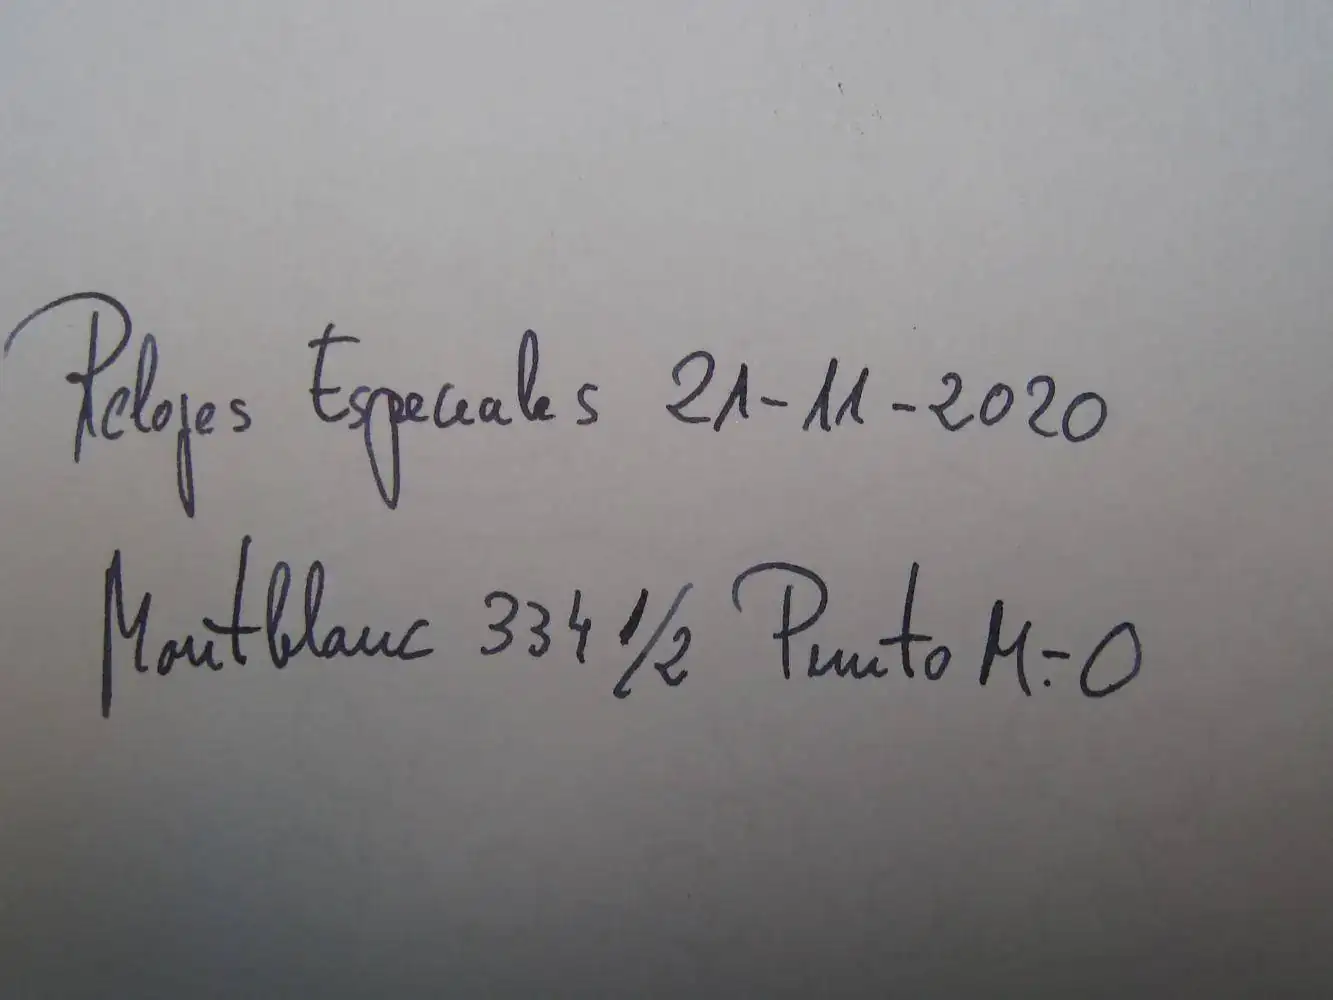 Relojes Especiales 21-11-2020
Montblanc 334 1/2 Punto M.-O